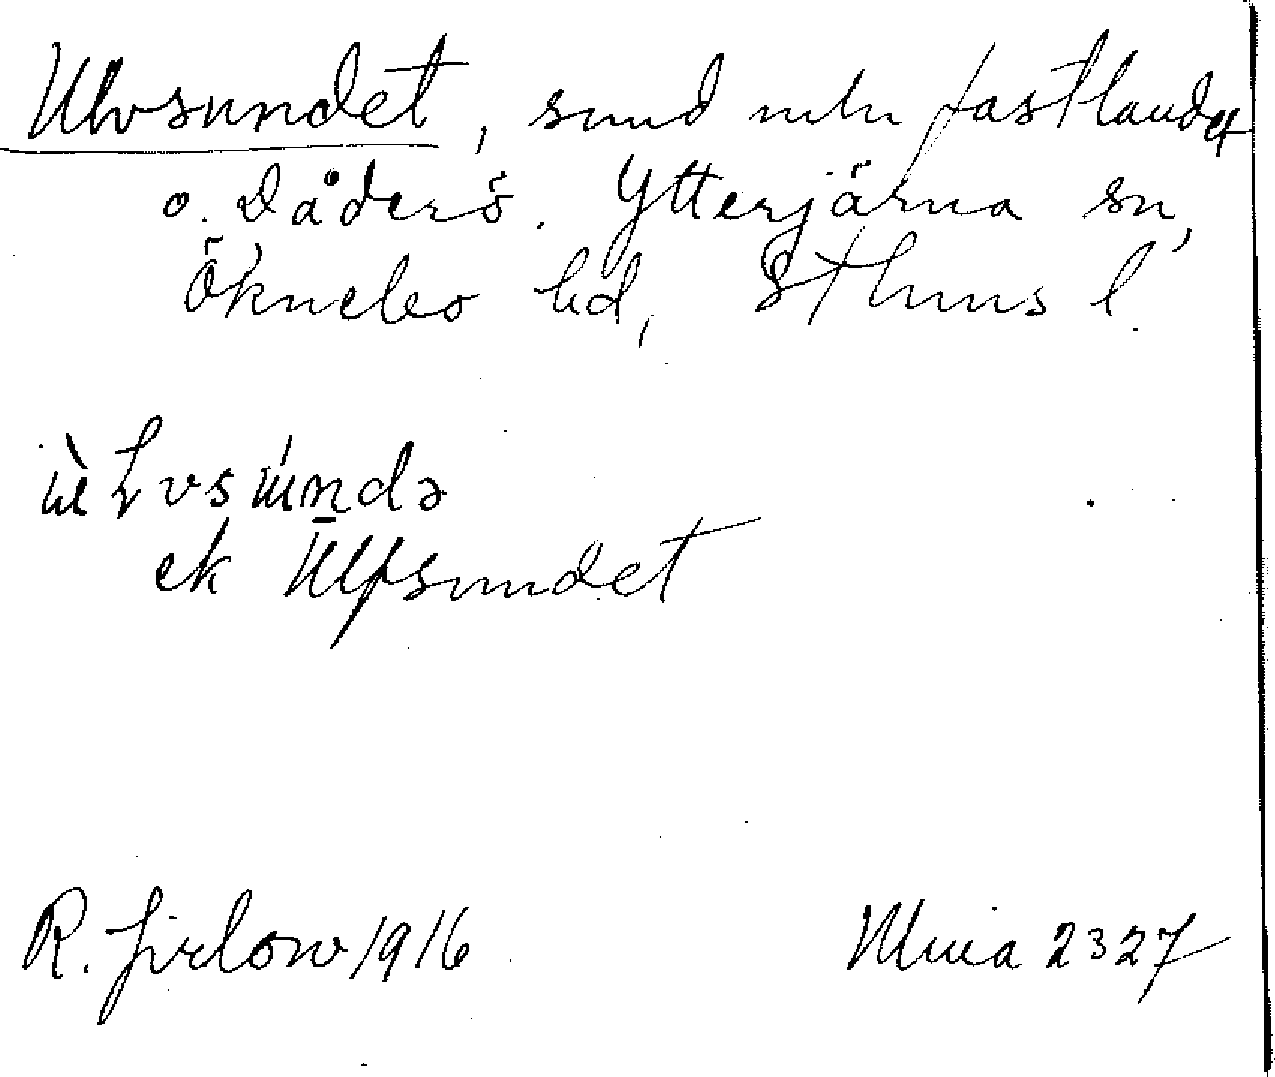 Ulvsundet, sund mln fastlandet
o. Dåderö. Ytterjärna sn,
Öknebo hd, Sthms l.
ek Ulfsundet
R. Jirlow 1916
Muia 2327